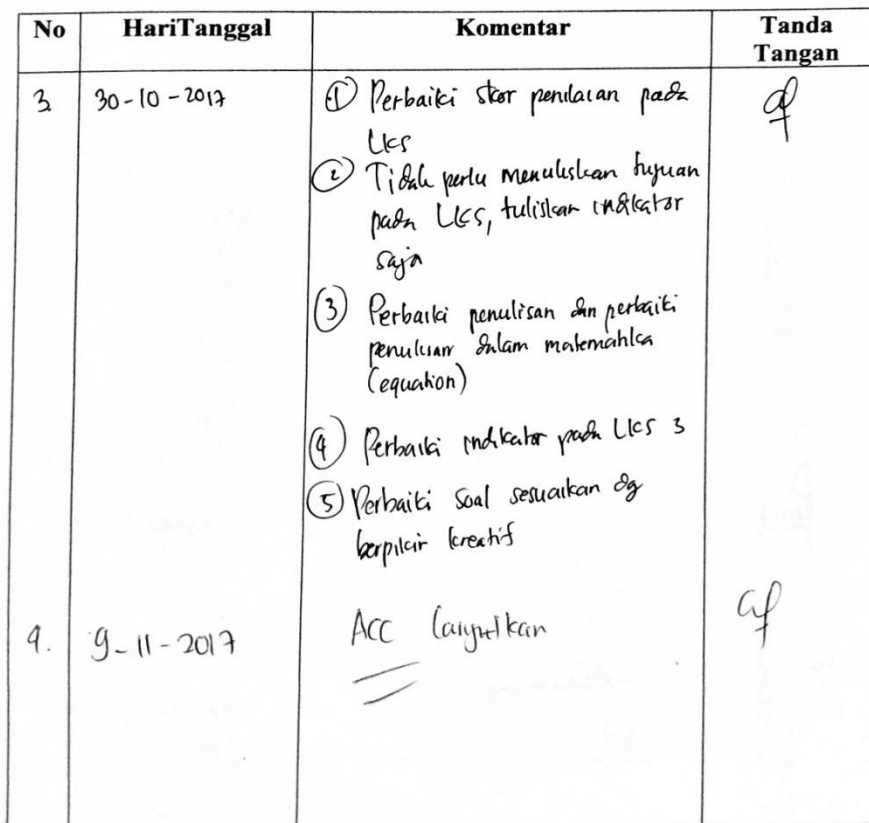 No HariTanggal Komentar Tanda Tangan
3. 30-10-2017 1 Perbaiki skor penilaian pada
LKS
2 Tidak perlu menuliskan tujuan
pada LKS, tuliskan indikator
saja
3 Perbaiki penulisan dan perbaiki
penulisan dalam matematika
(equation)
4 Perbaiki indikator pada LKS 3
5 Perbaiki soal sesuaikan dg
berpikir kreatif
4. 9-11-2017 ACC lanjutkan